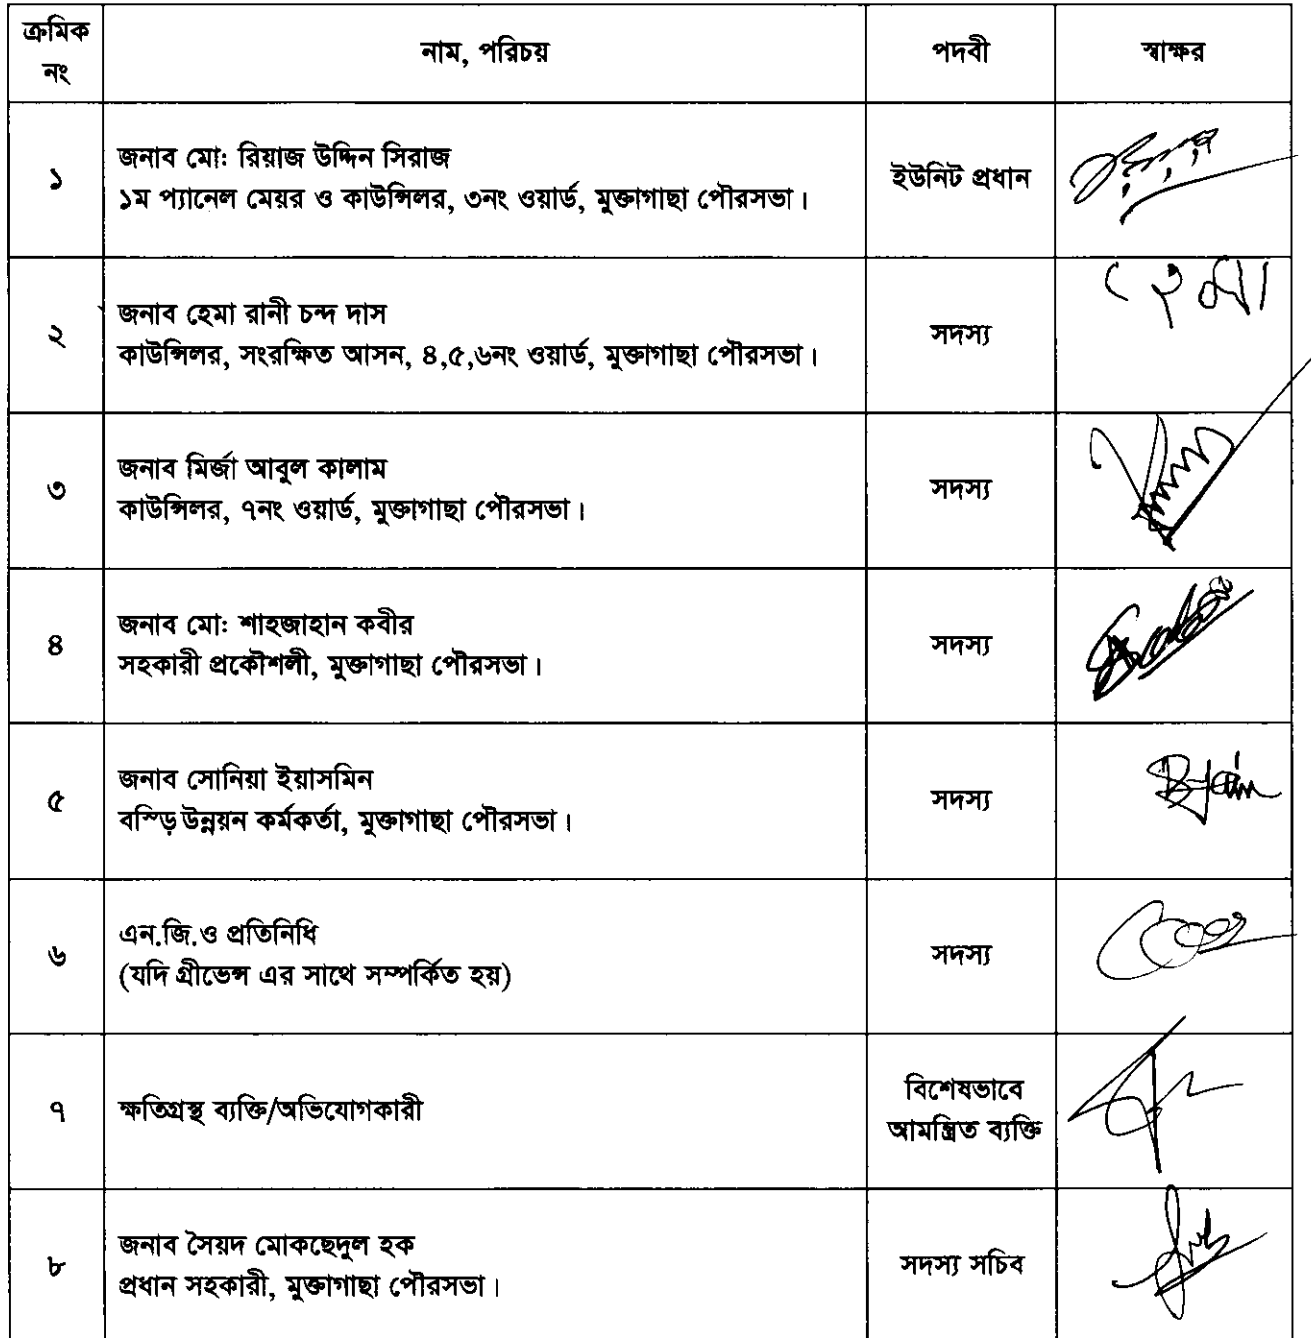 ক্রমিক নং নাম, পরিচয় পদবী স্বাক্ষর
১ জনাব মো: রিয়াজ উদ্দিন সিরাজ
১ম প্যানেল মেয়র ও কাউন্সিলর, ৩নং ওয়ার্ড, মুক্তাগাছা পৌরসভা। ইউনিট প্রধান
২ জনাব হেমা রানী চন্দ দাস
কাউন্সিলর, সংরক্ষিত আসন, ৪,৫,৬নং ওয়ার্ড, মুক্তাগাছা পৌরসভা। সদস্য
হেমা
৩ জনাব মির্জা আবুল কালাম
কাউন্সিলর, ৭নং ওয়ার্ড, মুক্তাগাছা পৌরসভা। সদস্য
৪ জনাব মো: শাহজাহান কবীর
সহকারী প্রকৌশলী, মুক্তাগাছা পৌরসভা। সদস্য
৫ জনাব সোনিয়া ইয়াসমিন
বস্ড়ি উন্নয়ন কর্মকর্তা, মুক্তাগাছা পৌরসভা। সদস্য
৬ এন.জি.ও প্রতিনিধি
(যদি গ্রীভেন্স এর সাথে সম্পর্কিত হয়) সদস্য
৭ ক্ষতিগ্রস্থ ব্যক্তি/অভিযোগকারী বিশেষভাবে
আমন্ত্রিত ব্যক্তি
৮ জনাব সৈয়দ মোকছেদুল হক
প্রধান সহকারী, মুক্তাগাছা পৌরসভা। সদস্য সচিব